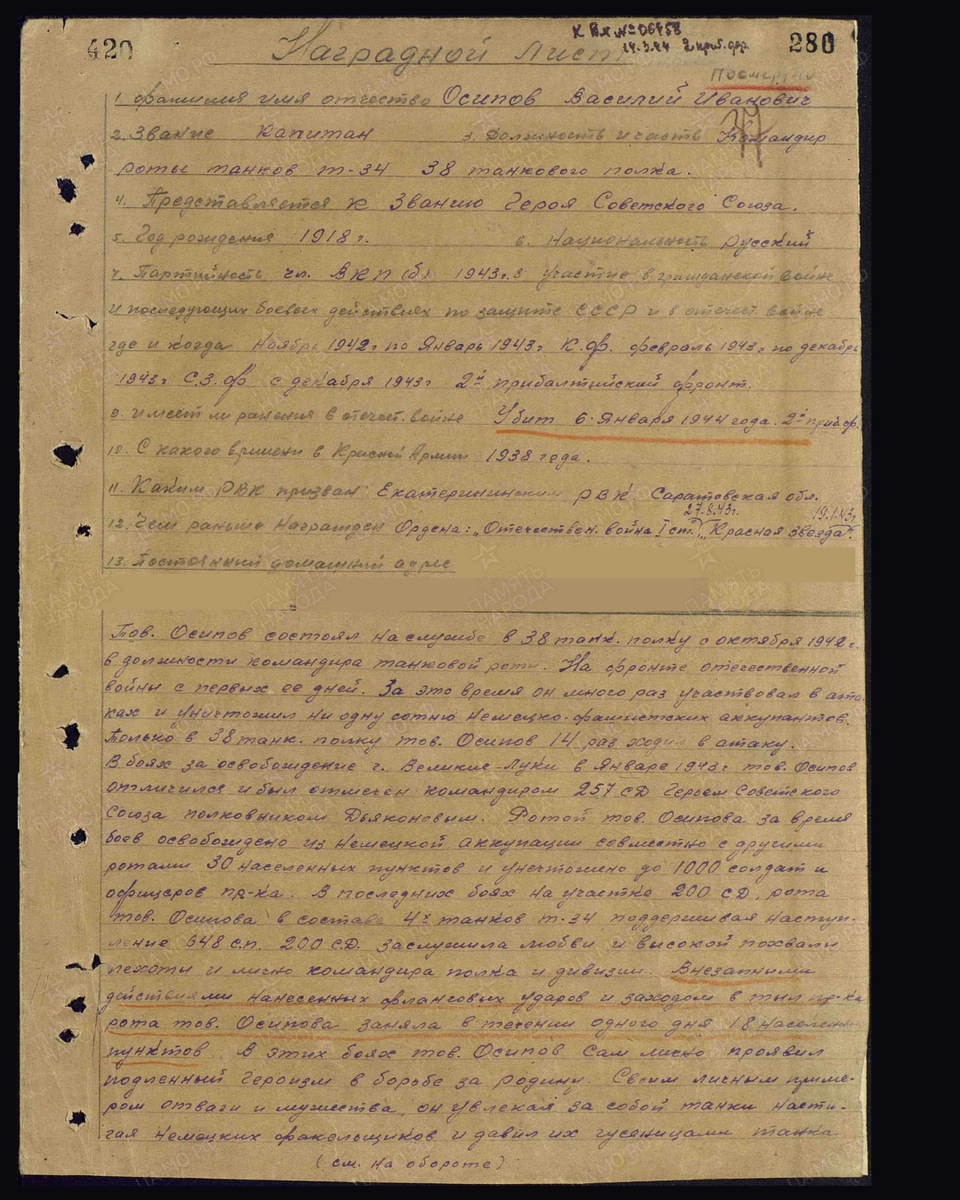 420
К Вх № 06458
14.3.44 2 приб. фр.
280
Наградной лист
Посмертно
1. Фамилия имя отчество Осипов Василий Иванович
2. Звание Капитан 3. Должность и часть Командир
роты танков т-34 38 танкового полка.
4. Представляется к Званию Героя Советского Союза.
5. Год рождения 1918 г. 6. Национальность русский
7. Партийность чл. ВКП(б) 1943 г. 8 Участие в гражданской войне
и последующих боевых действиях по защите СССР и в отечест. войне
где и когда Ноябрь 1942 г по Январь 1943 г К.Ф. февраль 1943 г по декабрь
1943 г С.З.Ф с декабря 1943 г 2й прибалтийский фронт.
9. имеет ли ранения в отечест. войне Убит 6 Января 1944 года. 2й приб.ф.
10. С какого времени в Красной Армии 1938 года.
11. Каким РВК призван Екатерининским РВК Саратовская обл.
27.8.43 г. 19.1.43 г.
12. Чем раньше награжден Ордена: „Отечествен. война I ст.", „Красная Звезда".
13. Постоянный домашний адрес
Тов. Осипов состоял на службе в 38 танк. полку с октября 1942 г.
в должности командира танковой роты. На фронте отечественной
войны с первых ее дней. За это время он много раз участвовал в ата-
ках и уничтожил ни одну сотню немецко-фашистских аккупантов.
Только в 38 танк. полку тов. Осипов 14 раз ходил в атаку.
В боях за освобождение г. Великие-Луки в Январе 1943 г тов. Осипов
отличился и был отмечен командиром 257 СД Героем Советского
Союза полковником Дьяконовым. Ротой тов. Осипова за время
боев освобождено из немецкой аккупации совместно с другими
ротами 30 населенных пунктов и уничтожено до 1000 солдат и
офицеров пр-ка. В последних боях на участке 200 СД, рота
тов. Осипова в составе 4х танков т-34 поддерживая наступ-
ление 648 с.п. 200 СД. заслужила любви и высокой похвалы
пехоты и лично командира полка и дивизии. Внезапными
действиями нанесенных фланговых ударов и заходом в тыл пр-ка
рота тов. Осипова заняла в течении одного дня 18 населен-
пунктов. В этих боях тов. Осипов сам лично проявил
подленный героизм в борьбе за родину. Своим личным приме-
ром отваги и мужества, он увлекая за собой танки насти-
гая немецких факельщиков и давил их гусеницами танка
(см. на обороте)